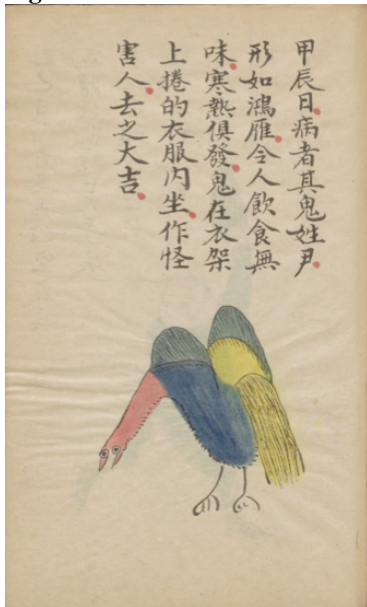 甲辰日病者其鬼姓尹
形如鴻雁令人飲食無
味寒熱俱發鬼在衣架
上捲的衣服內坐作怪
害人去之大吉